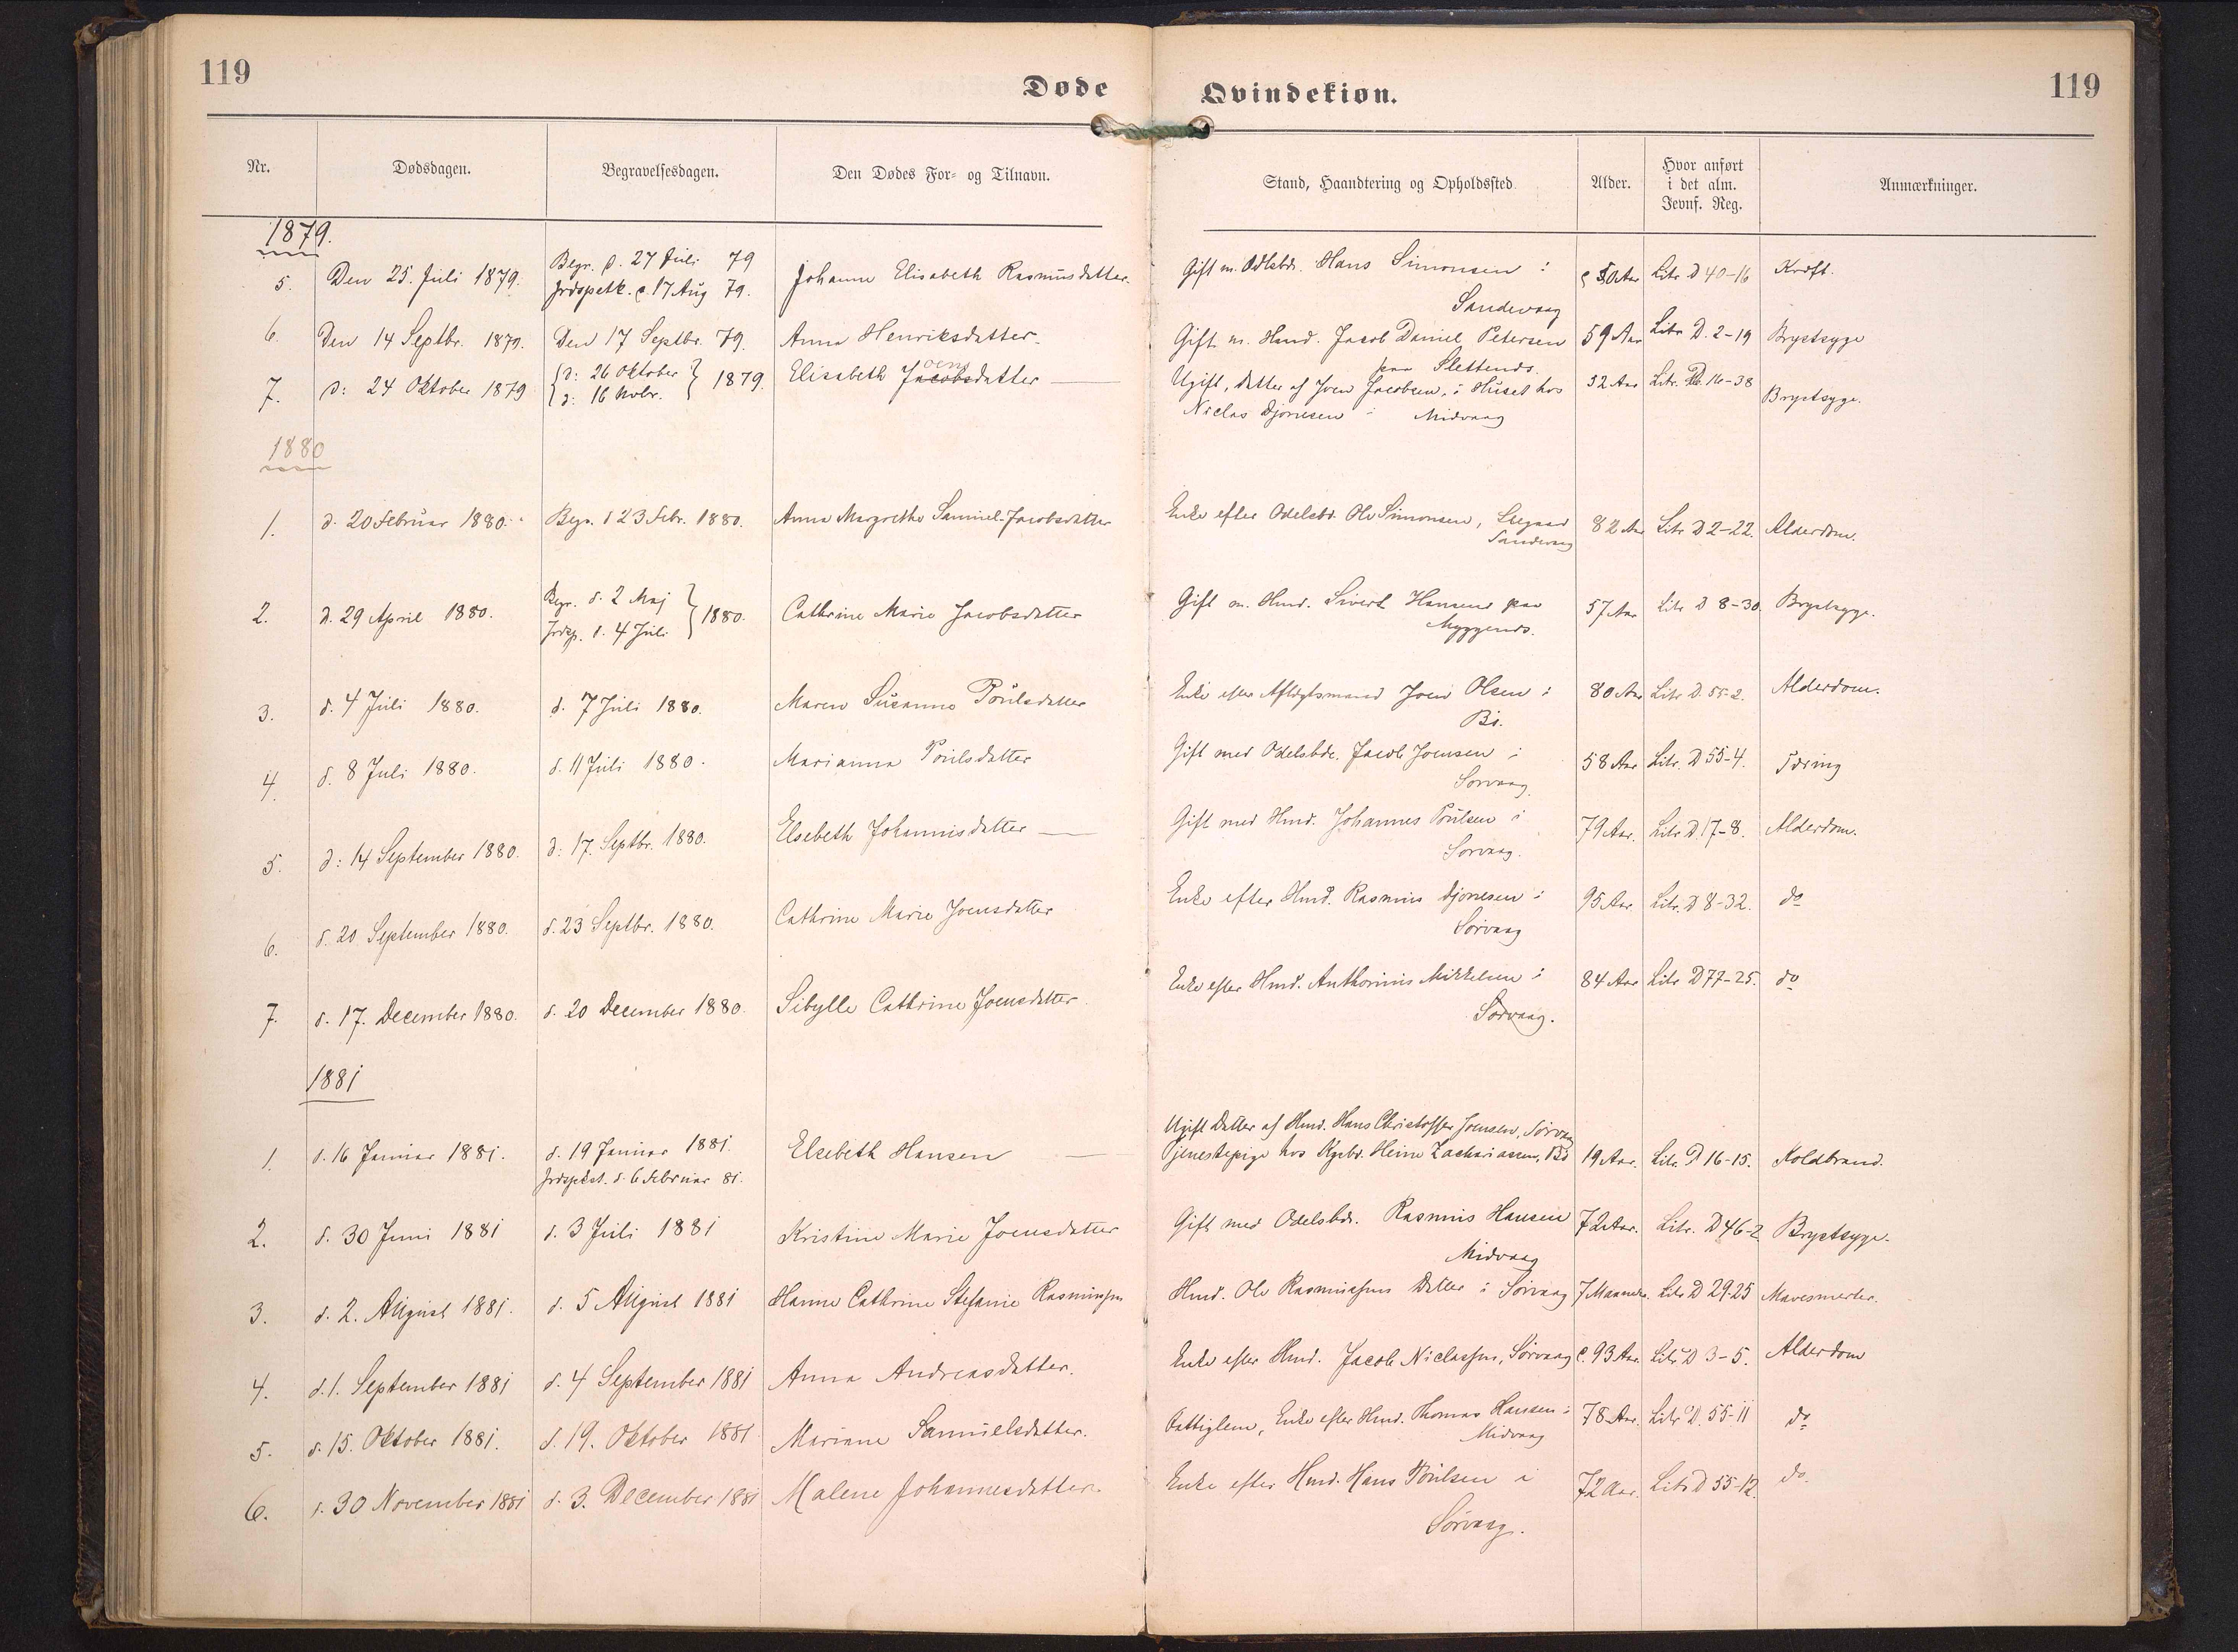 119
Døde
Qvindekiøn.
119
Nr.
Dødsdagen.
Begravelsesdagen.
Den Dødes For- og Tilnavn.
Stand, Haandtering og Opholdssted.
Alder.
Hvor anført
i det alm.
Jevnf. Reg.
Anmærkninger.
1879.
5. Den 25. Juli 1879. Begr. d. 27 Juli 79 Johanne Elisabeth Rasmusdatter. Gift m. Odlsbdr. Hans Simonsen i 50 Aar Litr D 40-16 Kræft.
Jrdspstk. d. 17 Aug 79. Sandevaag
6. Den 14 Septbr. 1879. Den 17 Septbr. 79. Anna Henriksdatter. Gift m. Hmd. Jacob Daniel Petersen 59 Aar Litr D. 2-19 Brystsyge
paa Slettends.
7. d: 24 Oktober 1879 d: 26 Oktober 1879. Elisabeth Joensdatter Ugift, Datter af Joen Jacobsen, i Huset hos 32 Aar Litr. D 16-38 Brystsyge.
d: 16 Novbr. Niclas Djonesen i Midvaag
1880
1. d. 20 Februar 1880. Begr. d 23 Febr. 1880. Anna Margrethe Samuel-Jacobsdatter Enke efter Odelsbd. Ole Simonsen, 82 Aar Litr D 2-22. Alderdom.
Sandevaag
2. d. 29 April 1880. Begr. d. 2 Maj 1880. Cathrine Marie Jacobsdatter Gift m. Hmd. Sivert Hansens paa 57 Aar Litr D 8-30 Brystsyge.
Jrdsp. d. 4 Juli Myggends.
3. d. 4 Juli 1880. d. 7 Juli 1880. Maren Susanne Poulsdatter Enke efter Aftægtsmand Joen Olsen i 80 Aar Litr D. 55-2. Alderdom.
Bø.
4. d. 8 Juli 1880. d. 11 Juli 1880. Marianna Poulsdatter Gift med Odelsbdr. Jacob Joensen i 58 Aar Litr. D 55-4. Tæring
Sørvaag.
5. d: 14 September 1880. d: 17. Septbr. 1880. Elsebeth Johannisdatter Gift med Hmd. Johannes Poulsen i 79 Aar. Litr D. 17-8. Alderdom.
Sørvaag.
6. d. 20 September 1880. d. 23 Septbr. 1880. Cathrine Marie Joensdatter Enke efter Hmd. Rasmus Djonesen i 95 Aar. Litr. D 8-32. do
Sørvaag
7. d. 17. December 1880. d. 20 December 1880. Sibylle Cathrine Joensdatter. Enke efter Hmd. Anthonius Mikkelsen i 84 Aar Litr D 77-25. do
Sørvaag.
1881
Ugift Datter af Hmd. Hans Christoffer Joensen, Sørvaag
1. d. 16 Januar 1881. d. 19 Januar 1881. Elsebeth Hansen Tjenestepige hos Kgsbd. Heine Zachariasen, Bø 19 Aar. Litr. D 16-15. Koldbrand.
Jrdspkst. d. 6 Februar 81.
2. d. 30 Juni 1881 d. 3 Juli 1881 Kristine Marie Joensdatter Gift med Odelsbdr. Rasmus Hansen 72 Aar. Litr. D 46-2 Brystsyge.
Midvaag
3. d. 2. August 1881. d. 5 August 1881 Hanne Cathrine Stefanie Rasmussen Hmd. Ole Rasmussens Datter i Sørvaag 7 Maaneder. Litr D 29-25 Mavesmerter.
4. d. 1. September 1881 d. 4 September 1881 Anna Andreasdatter. Enke efter Hmd. Jacob Niclassen, Sørvaag c. 93 Aar. Litr D 3-5. Alderdom
5. d. 15. Oktober 1881. d. 19. Oktober 1881 Mariane Samuelsdatter. Fattiglem, Enke efter Hmd. Thomas Hansen i 78 Aar. Litr D. 55-11 do
Midvaag
6. d. 30 November 1881 d. 3. December 1881 Malene Johannesdatter. Enke efter Hmd. Hans Poulsen i 72 Aar. Litr D 55-12. do.
Sørvaag.